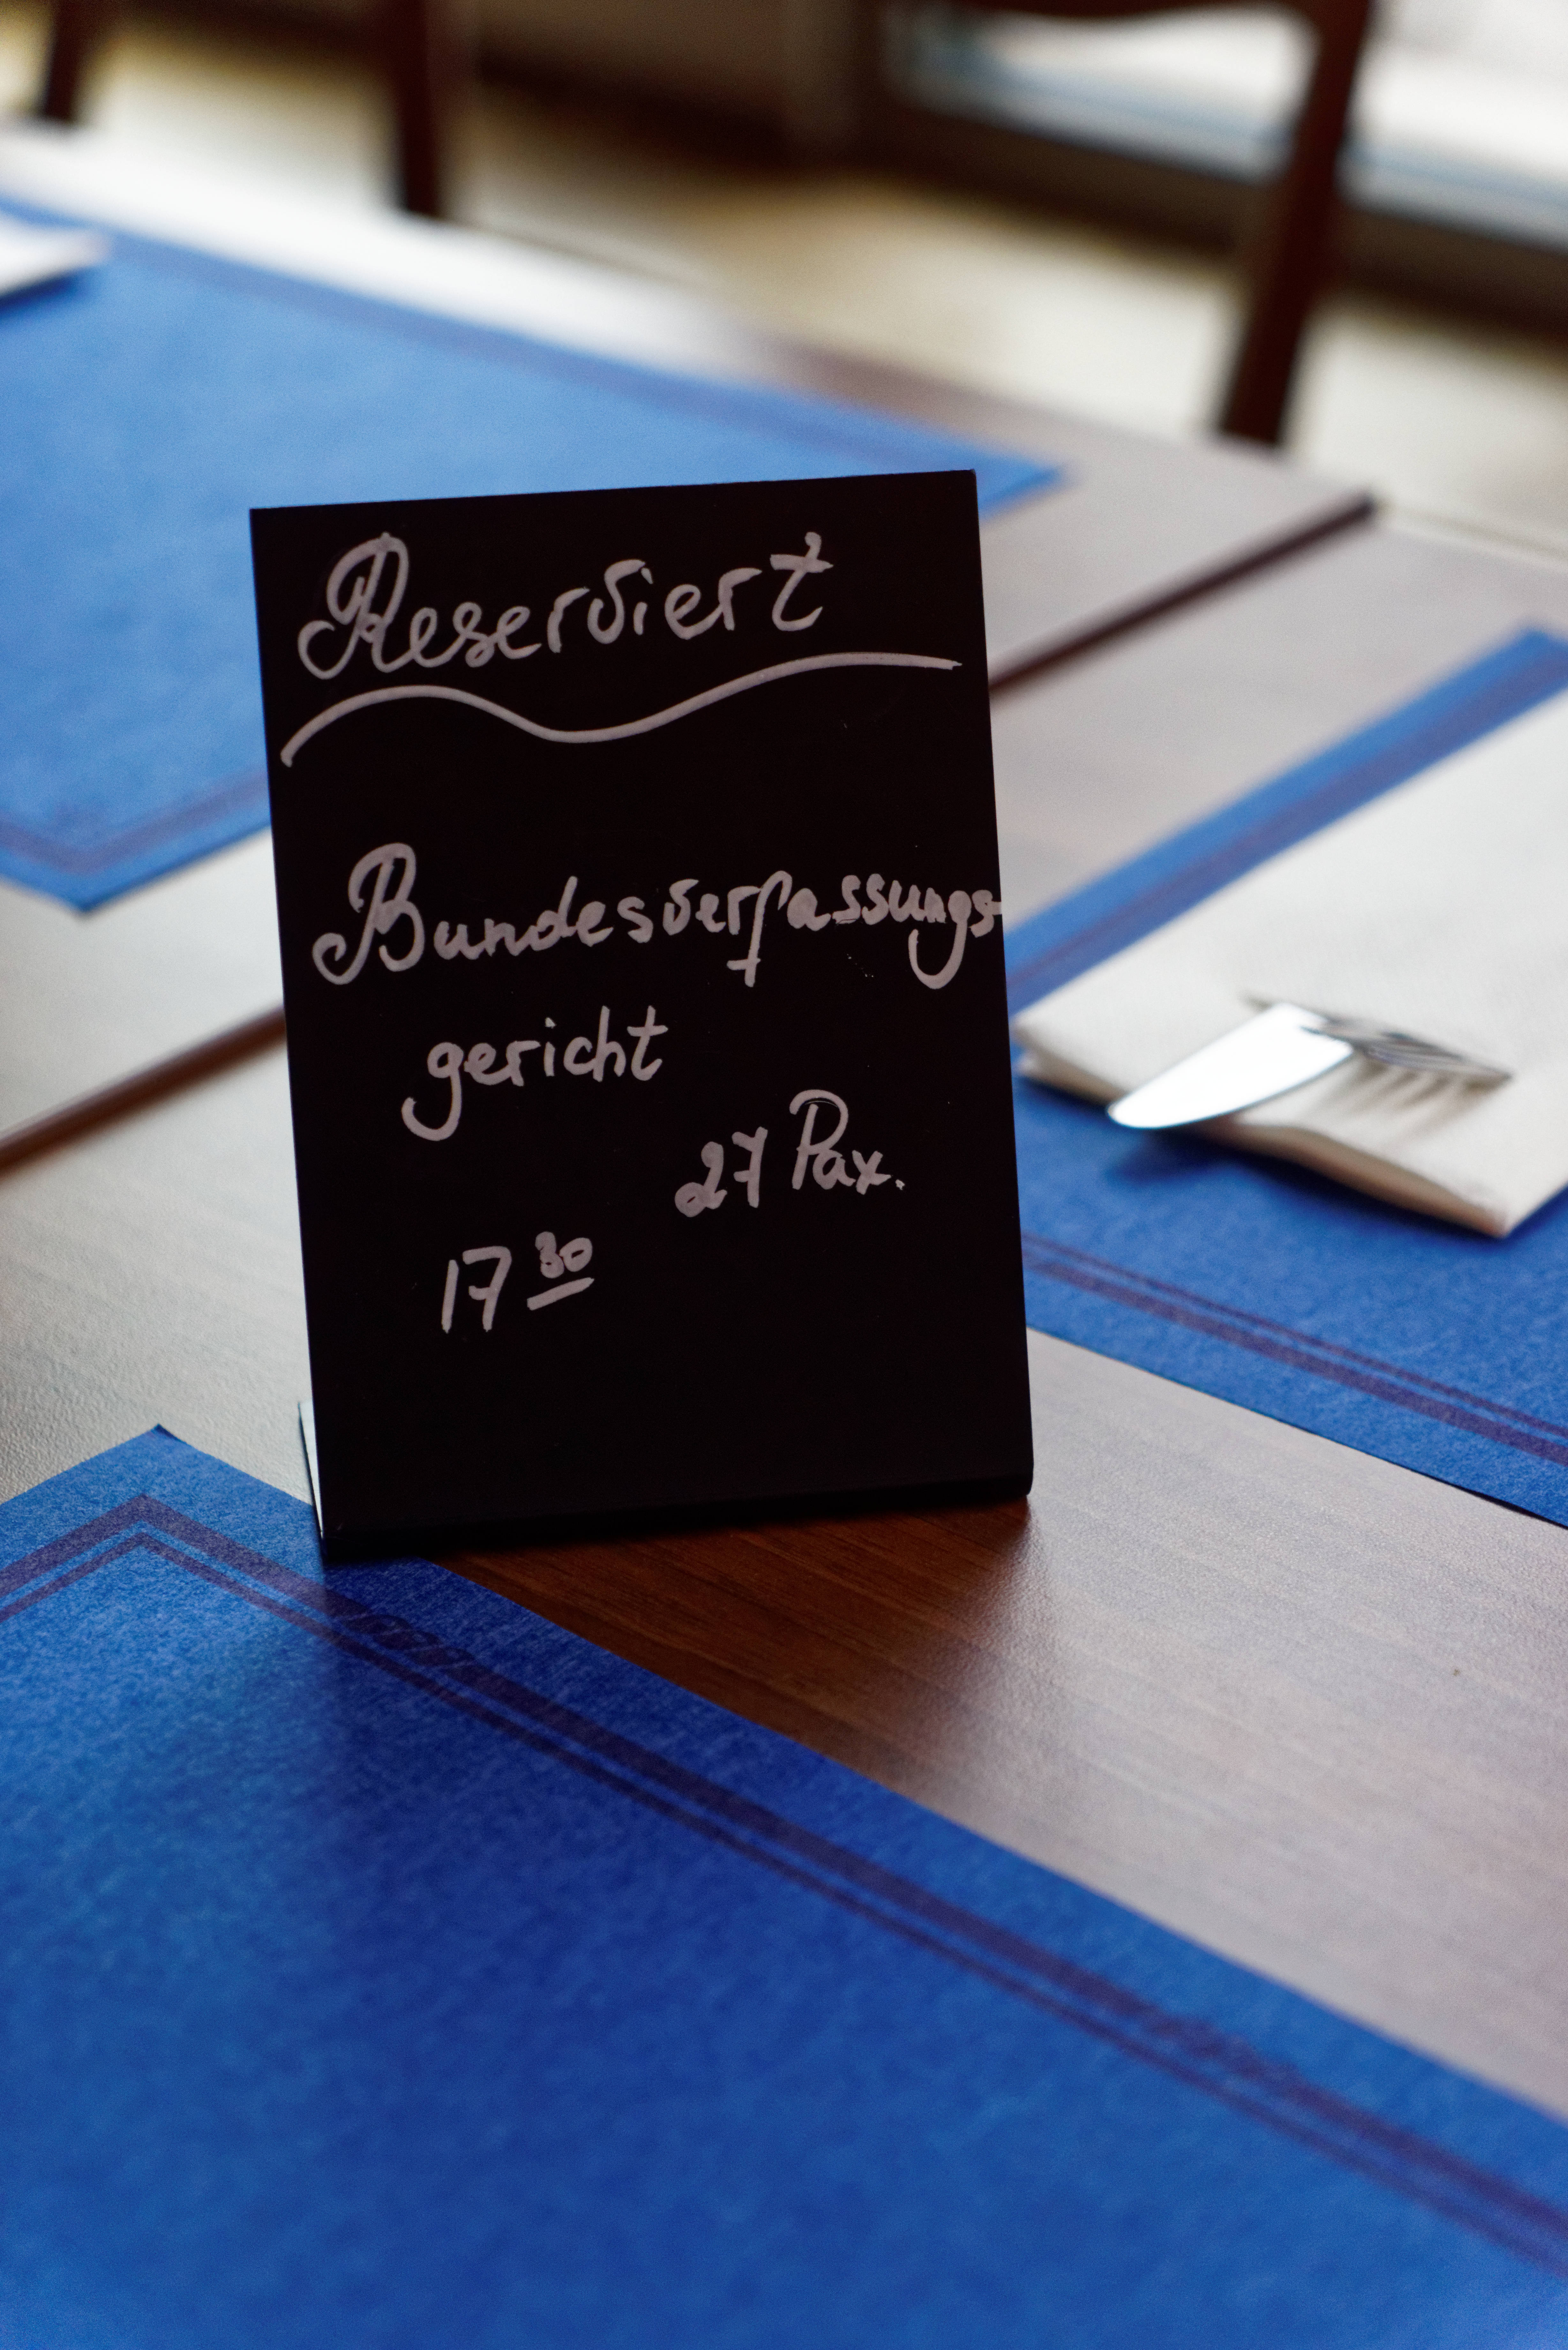 Reserviert
Bundesverfassungs-
gericht
27 Pax.
17 30